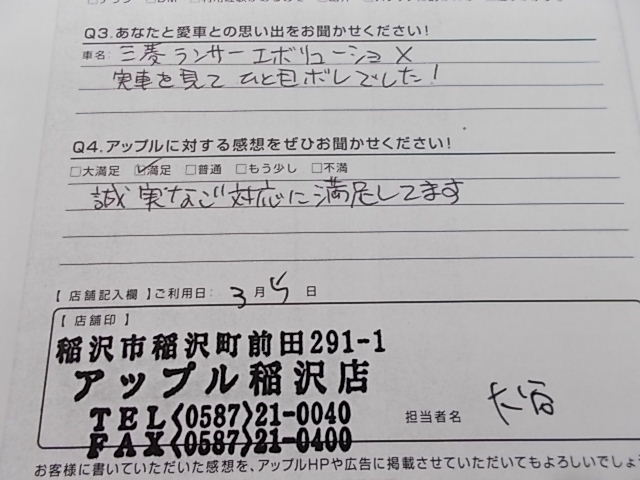 Q3.あなたと愛車との思い出をお聞かせください!
車名: 三菱ランサーエボリューションX
実車を見てひと目ボレでした!
Q4.アップルに対する感想をぜひお聞かせください!
□大満足 ☑満足 □普通 □もう少し □不満
誠実なご対応に満足してます
【 店舗記入欄 】ご利用日: 3月 日
【 店舗印 】
稲沢市稲沢町前田291-1
アップル稲沢店
TEL〈0587〉21-0040
FAX〈0587〉21-0400
担当者名 大谷
お客様に書いていただいた感想を、アップルHPや広告に掲載させていただいてもよろしいでしょ